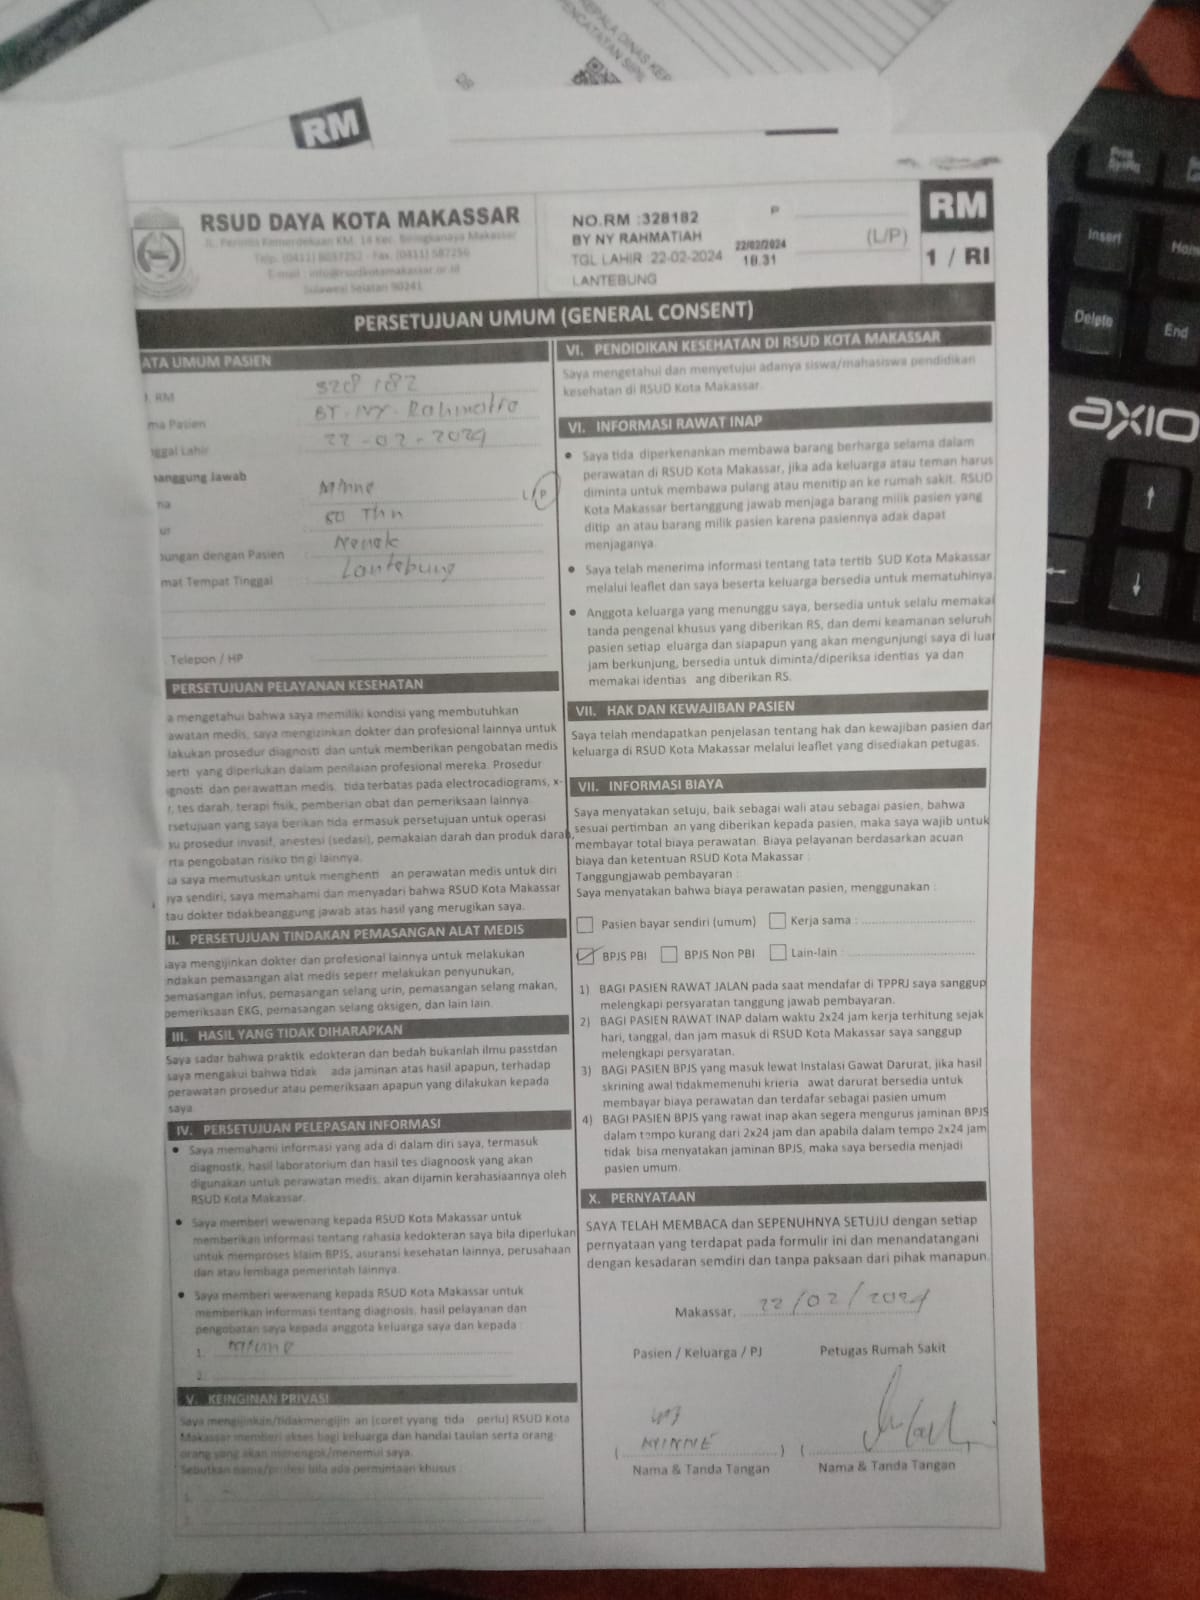 KEPALA DINAS KEP
PENCATATAN SIPIL
RM
RSUD DAYA KOTA MAKASSAR
JL. Perintis Kemerdekaan KM. 14 Kec. Biringkanaya Makassar
Sulawesi Selatan 90241
NO.RM :328182
P
BY NY RAHMATIAH
22/02/2024
(L/P)
TGL LAHIR :22-02-2024
18.31
LANTEBUNG
RM
1 / RI
PERSETUJUAN UMUM (GENERAL CONSENT)
ATA UMUM PASIEN
. RM 328182
ma Pasien
ggal Lahir 22-02-2024
anggung Jawab
na Minne L/P
ur 50 Thn
ungan dengan Pasien Nenek
mat Tempat Tinggal Lantebung
. Telepon / HP
PERSETUJUAN PELAYANAN KESEHATAN
a mengetahui bahwa saya memiliki kondisi yang membutuhkan
awatan medis, saya mengizinkan dokter dan profesional lainnya untuk
lakukan prosedur diagnosti dan untuk memberikan pengobatan medis
erti yang diperlukan dalam penilaian profesional mereka. Prosedur
gnosti dan perawattan medis, tida terbatas pada electrocadiograms, x-
r, tes darah, terapi fisik, pemberian obat dan pemeriksaan lainnya
rsetujuan yang saya berikan tida ermasuk persetujuan untuk operasi
su prosedur invasif, anestesi (sedasi), pemakaian darah dan produk darah,
rta pengobatan risiko tin gi lainnya.
a saya memutuskan untuk menghenti an perawatan medis untuk diri
ya sendiri, saya memahami dan menyadari bahwa RSUD Kota Makassar
tau dokter tidakbeanggung jawab atas hasil yang merugikan saya.
II. PERSETUJUAN TINDAKAN PEMASANGAN ALAT MEDIS
aya mengijinkan dokter dan profesional lainnya untuk melakukan
ndakan pemasangan alat medis seperr melakukan penyunukan,
pemasangan infus, pemasangan selang urin, pemasangan selang makan,
pemeriksaan EKG, pemasangan selang oksigen, dan lain lain.
III. HASIL YANG TIDAK DIHARAPKAN
Saya sadar bahwa praktik edokteran dan bedah bukanlah ilmu passtdan
saya mengakui bahwa tidak ada jaminan atas hasil apapun, terhadap
perawatan prosedur atau pemeriksaan apapun yang dilakukan kepada
saya
IV. PERSETUJUAN PELEPASAN INFORMASI
• Saya memahami informasi yang ada di dalam diri saya, termasuk
diagnostk, hasil laboratorium dan hasil tes diagnoosk yang akan
digunakan untuk perawatan medis, akan dijamin kerahasiaannya oleh
RSUD Kota Makassar.
• Saya memberi wewenang kepada RSUD Kota Makassar untuk
memberikan informasi tentang rahasia kedokteran saya bila diperlukan
untuk memproses klaim BPJS, asuransi kesehatan lainnya, perusahaan
dan atau lembaga pemerintah lainnya.
• Saya memberi wewenang kepada RSUD Kota Makassar untuk
memberikan informasi tentang diagnosis, hasil pelayanan dan
pengobatan saya kepada anggota keluarga saya dan kepada :
1.
2.
V. KEINGINAN PRIVASI
Saya mengijinkan/tidakmengijin an (coret yyang tida perlu) RSUD Kota
Makassar memberi akses bagi keluarga dan handai taulan serta orang-
orang yang akan menengok/menemui saya.
Sebutkan nama/profesi bila ada permintaan khusus :
1.
2.
VI. PENDIDIKAN KESEHATAN DI RSUD KOTA MAKASSAR
Saya mengetahui dan menyetujui adanya siswa/mahasiswa pendidikan
kesehatan di RSUD Kota Makassar.
VI. INFORMASI RAWAT INAP
• Saya tida diperkenankan membawa barang berharga selama dalam
perawatan di RSUD Kota Makassar, jika ada keluarga atau teman harus
diminta untuk membawa pulang atau menitip an ke rumah sakit. RSUD
Kota Makassar bertanggung jawab menjaga barang milik pasien yang
ditip an atau barang milik pasien karena pasiennya adak dapat
menjaganya.
• Saya telah menerima informasi tentang tata tertib SUD Kota Makassar
melalui leaflet dan saya beserta keluarga bersedia untuk mematuhinya
• Anggota keluarga yang menunggu saya, bersedia untuk selalu memakai
tanda pengenal khusus yang diberikan RS, dan demi keamanan seluruh
pasien setiap eluarga dan siapapun yang akan mengunjungi saya di luar
jam berkunjung, bersedia untuk diminta/diperiksa identias ya dan
memakai identias ang diberikan RS.
VII. HAK DAN KEWAJIBAN PASIEN
Saya telah mendapatkan penjelasan tentang hak dan kewajiban pasien dar
keluarga di RSUD Kota Makassar melalui leaflet yang disediakan petugas.
VII. INFORMASI BIAYA
Saya menyatakan setuju, baik sebagai wali atau sebagai pasien, bahwa
sesuai pertimban an yang diberikan kepada pasien, maka saya wajib untuk
membayar total biaya perawatan. Biaya pelayanan berdasarkan acuan
biaya dan ketentuan RSUD Kota Makassar :
Tanggungjawab pembayaran :
Saya menyatakan bahwa biaya perawatan pasien, menggunakan :
Pasien bayar sendiri (umum) Kerja sama :
BPJS PBI BPJS Non PBI Lain-lain :
1) BAGI PASIEN RAWAT JALAN pada saat mendafar di TPPRJ saya sanggup
melengkapi persyaratan tanggung jawab pembayaran.
2) BAGI PASIEN RAWAT INAP dalam waktu 2x24 jam kerja terhitung sejak
hari, tanggal, dan jam masuk di RSUD Kota Makassar saya sanggup
melengkapi persyaratan.
3) BAGI PASIEN BPJS yang masuk lewat Instalasi Gawat Darurat, jika hasil
skrining awal tidakmemenuhi krieria awat darurat bersedia untuk
membayar biaya perawatan dan terdafar sebagai pasien umum
4) BAGI PASIEN BPJS yang rawat inap akan segera mengurus jaminan BPJS
dalam tempo kurang dari 2x24 jam dan apabila dalam tempo 2x24 jam
tidak bisa menyatakan jaminan BPJS, maka saya bersedia menjadi
pasien umum.
X. PERNYATAAN
SAYA TELAH MEMBACA dan SEPENUHNYA SETUJU dengan setiap
pernyataan yang terdapat pada formulir ini dan menandatangani
dengan kesadaran semdiri dan tanpa paksaan dari pihak manapun.
Makassar, 22/02/2024
Pasien / Keluarga / PJ Petugas Rumah Sakit
( MINNE ) (
Nama & Tanda Tangan Nama & Tanda Tangan
Insert
Delete
End
AXIO